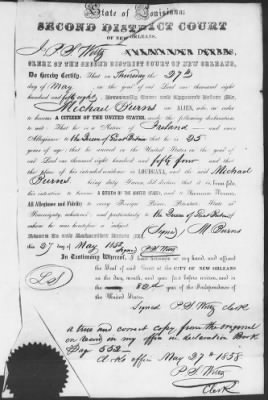 State of Louisiana:
SECOND DISTRICT COURT
OF NEW ORLEANS.
CLERK OF THE SECOND DISTRICT COURT OF NEW ORLEANS,
Do hereby Certify, That on Thursday the 27th
day of May in the year of our Lord one thousand eight
hundred and fifty eight, Personally Came and Appeared Before Me,
Michael Burns AN ALIEN, who, in order
to become A CITIZEN OF THE UNITED STATES, under the laws relative to naturalization, did declare
to unto me That he is a Native of Ireland and owes
Allegiance to the Queen of Great Britain that he is 25
years of age; that he arrived in the United States in the year of our
Lord one thousand eight hundred and fifty four and that
the place of his intended residence is LOUISIANA, and the said Michael
Burns being duly Sworn, did declare that it is bona fide,
his intention to become A CITIZEN OF THE UNITED STATES, and to Renounce Forever,
All Allegiance and Fidelity to every Foreign Prince, Potentate, State or
Sovereignty, whatever, and particularly to the Queen of Great Britain
of whom he was heretofore a subject (Signed) M Burns
Sworn to and Subscribed Before Me
this 27 day of May 1858
Signed P S Wiltz
In Testimony Whereof, I have hereunto set my hand, and affixed
the Seal of said Court at the CITY OF NEW ORLEANS
on the day, month, and year first before written, and in
the 82nd year of the Independence of
the United States.
LS
Signed P S Wiltz Clerk
a true and correct copy from the original
on record in my office in declaration Book
Page 552
Clerks office May 27th 1858.
P S Wiltz
Clerk